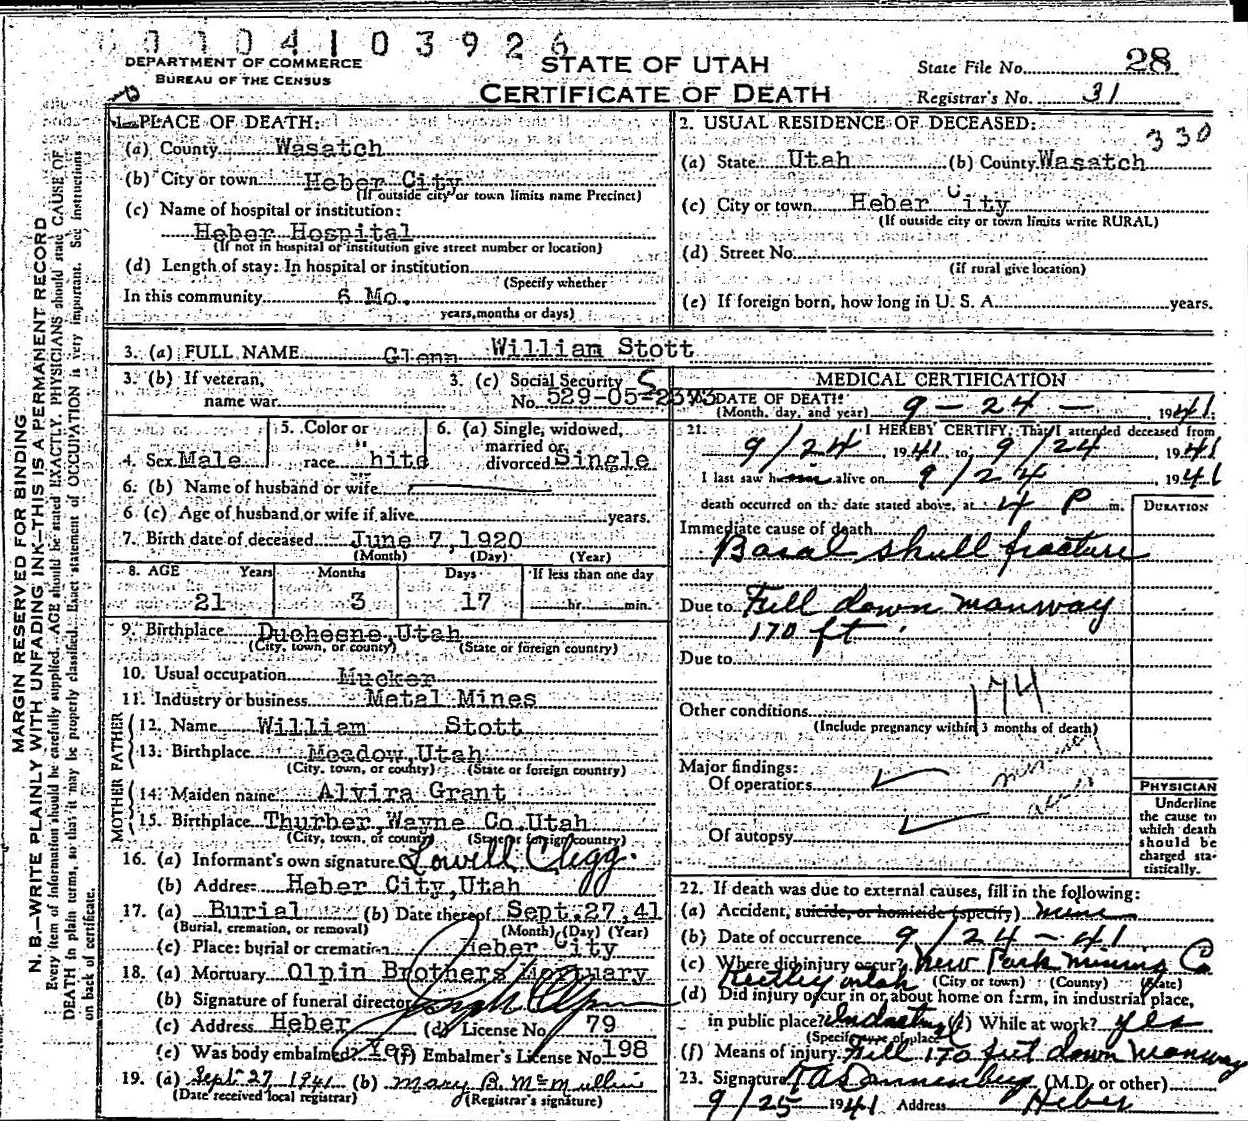 0 7 0 4 1 0 3 9 2 6
DEPARTMENT OF COMMERCE
BUREAU OF THE CENSUS
STATE OF UTAH
CERTIFICATE OF DEATH
State File No. 28
Registrar's No. 31
MARGIN RESERVED FOR BINDING
N. B.—WRITE PLAINLY WITH UNFADING INK—THIS IS A PERMANENT RECORD
Every item of information should be carefully supplied. AGE should be stated EXACTLY. PHYSICIANS should state CAUSE OF
DEATH in plain terms, so that it may be properly classified. Exact statement of OCCUPATION is very important. See instructions
on back of certificate.
1. PLACE OF DEATH:
(a) County Wasatch
(b) City or town Heber City
(If outside city or town limits name Precinct)
(c) Name of hospital or institution:
Heber Hospital
(If not in hospital or institution give street number or location)
(d) Length of stay: In hospital or institution
(Specify whether
In this community 6 Mo.
years, months or days)
2. USUAL RESIDENCE OF DECEASED:
330
(a) State Utah (b) County Wasatch
(c) City or town Heber City
(If outside city or town limits write RURAL)
(d) Street No.
(if rural give location)
(e) If foreign born, how long in U. S. A. years.
3. (a) FULL NAME Glenn William Stott
3. (b) If veteran,
name war
3. (c) Social Security S
No. 529-05-2373
4. Sex Male
5. Color or
race "hite
6. (a) Single, widowed,
married or
divorced Single
6. (b) Name of husband or wife
6 (c) Age of husband or wife if alive years.
7. Birth date of deceased June 7, 1920
(Month) (Day) (Year)
8. AGE Years Months Days If less than one day
21 3 17 hr. min.
9. Birthplace Duchesne, Utah
(City, town, or county) (State or foreign country)
10. Usual occupation Mucker
11. Industry or business Metal Mines
FATHER
12. Name William Stott
13. Birthplace Meadow, Utah
(City, town, or county) (State or foreign country)
MOTHER
14. Maiden name Alvira Grant
15. Birthplace Thurber, Wayne Co, Utah
(City, town, or county) (State or foreign country)
16. (a) Informant's own signature Lowell Clegg.
(b) Address Heber City, Utah
17. (a) Burial (b) Date thereof Sept. 27, 41
(Burial, cremation, or removal) (Month) (Day) (Year)
(c) Place: burial or cremation Heber City
18. (a) Mortuary Olpin Brothers Mortuary
(b) Signature of funeral director Joseph Olpin
(c) Address Heber (d) License No. 79
(e) Was body embalmed? Yes (f) Embalmer's License No. 198
19. (a) Sept 27 1941 (b) Mary B. McMullin
(Date received local registrar) (Registrar's signature)
MEDICAL CERTIFICATION
DATE OF DEATH:
(Month, day, and year) 9-24- , 1941
21. I HEREBY CERTIFY, That I attended deceased from
9/24, 1941 to 9/24, 1941
I last saw him alive on 9/24, 1941
death occurred on the date stated above, at 4 P m.
DURATION
Immediate cause of death
Basal skull fracture
Due to Fell down manway
170 ft.
Due to
174
Other conditions
(Include pregnancy within 3 months of death)
Major findings:
Of operations
Of autopsy
PHYSICIAN
Underline
the cause to
which death
should be
charged sta-
tistically.
22. If death was due to external causes, fill in the following:
(a) Accident, suicide, or homicide (specify) mine
(b) Date of occurrence 9/24-41
(c) Where did injury occur? New Park Mining Co
Keetley Utah (City or town) (County) (State)
(d) Did injury occur in or about home on farm, in industrial place,
in public place? Industry (e) While at work? yes
(Specify type of place)
(f) Means of injury. Fell 170 feet down manway
23. Signature R A Dannenberg (M.D. or other)
9/25 1941 Address Heber